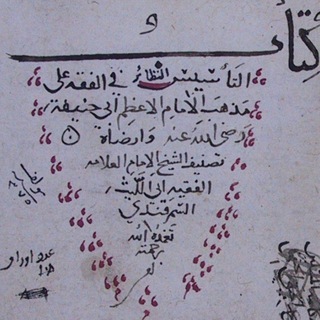 كتاب
التأسيس النظائر في الفقه على
مذهب الامام الاعظم ابي حنيفة
رضى الله عنه وارضاه
تصنيف الشيخ الامام العلامه
الفقيه ابي الليث
السمرقندي
تغمده الله
برحمته
عدد اوراق